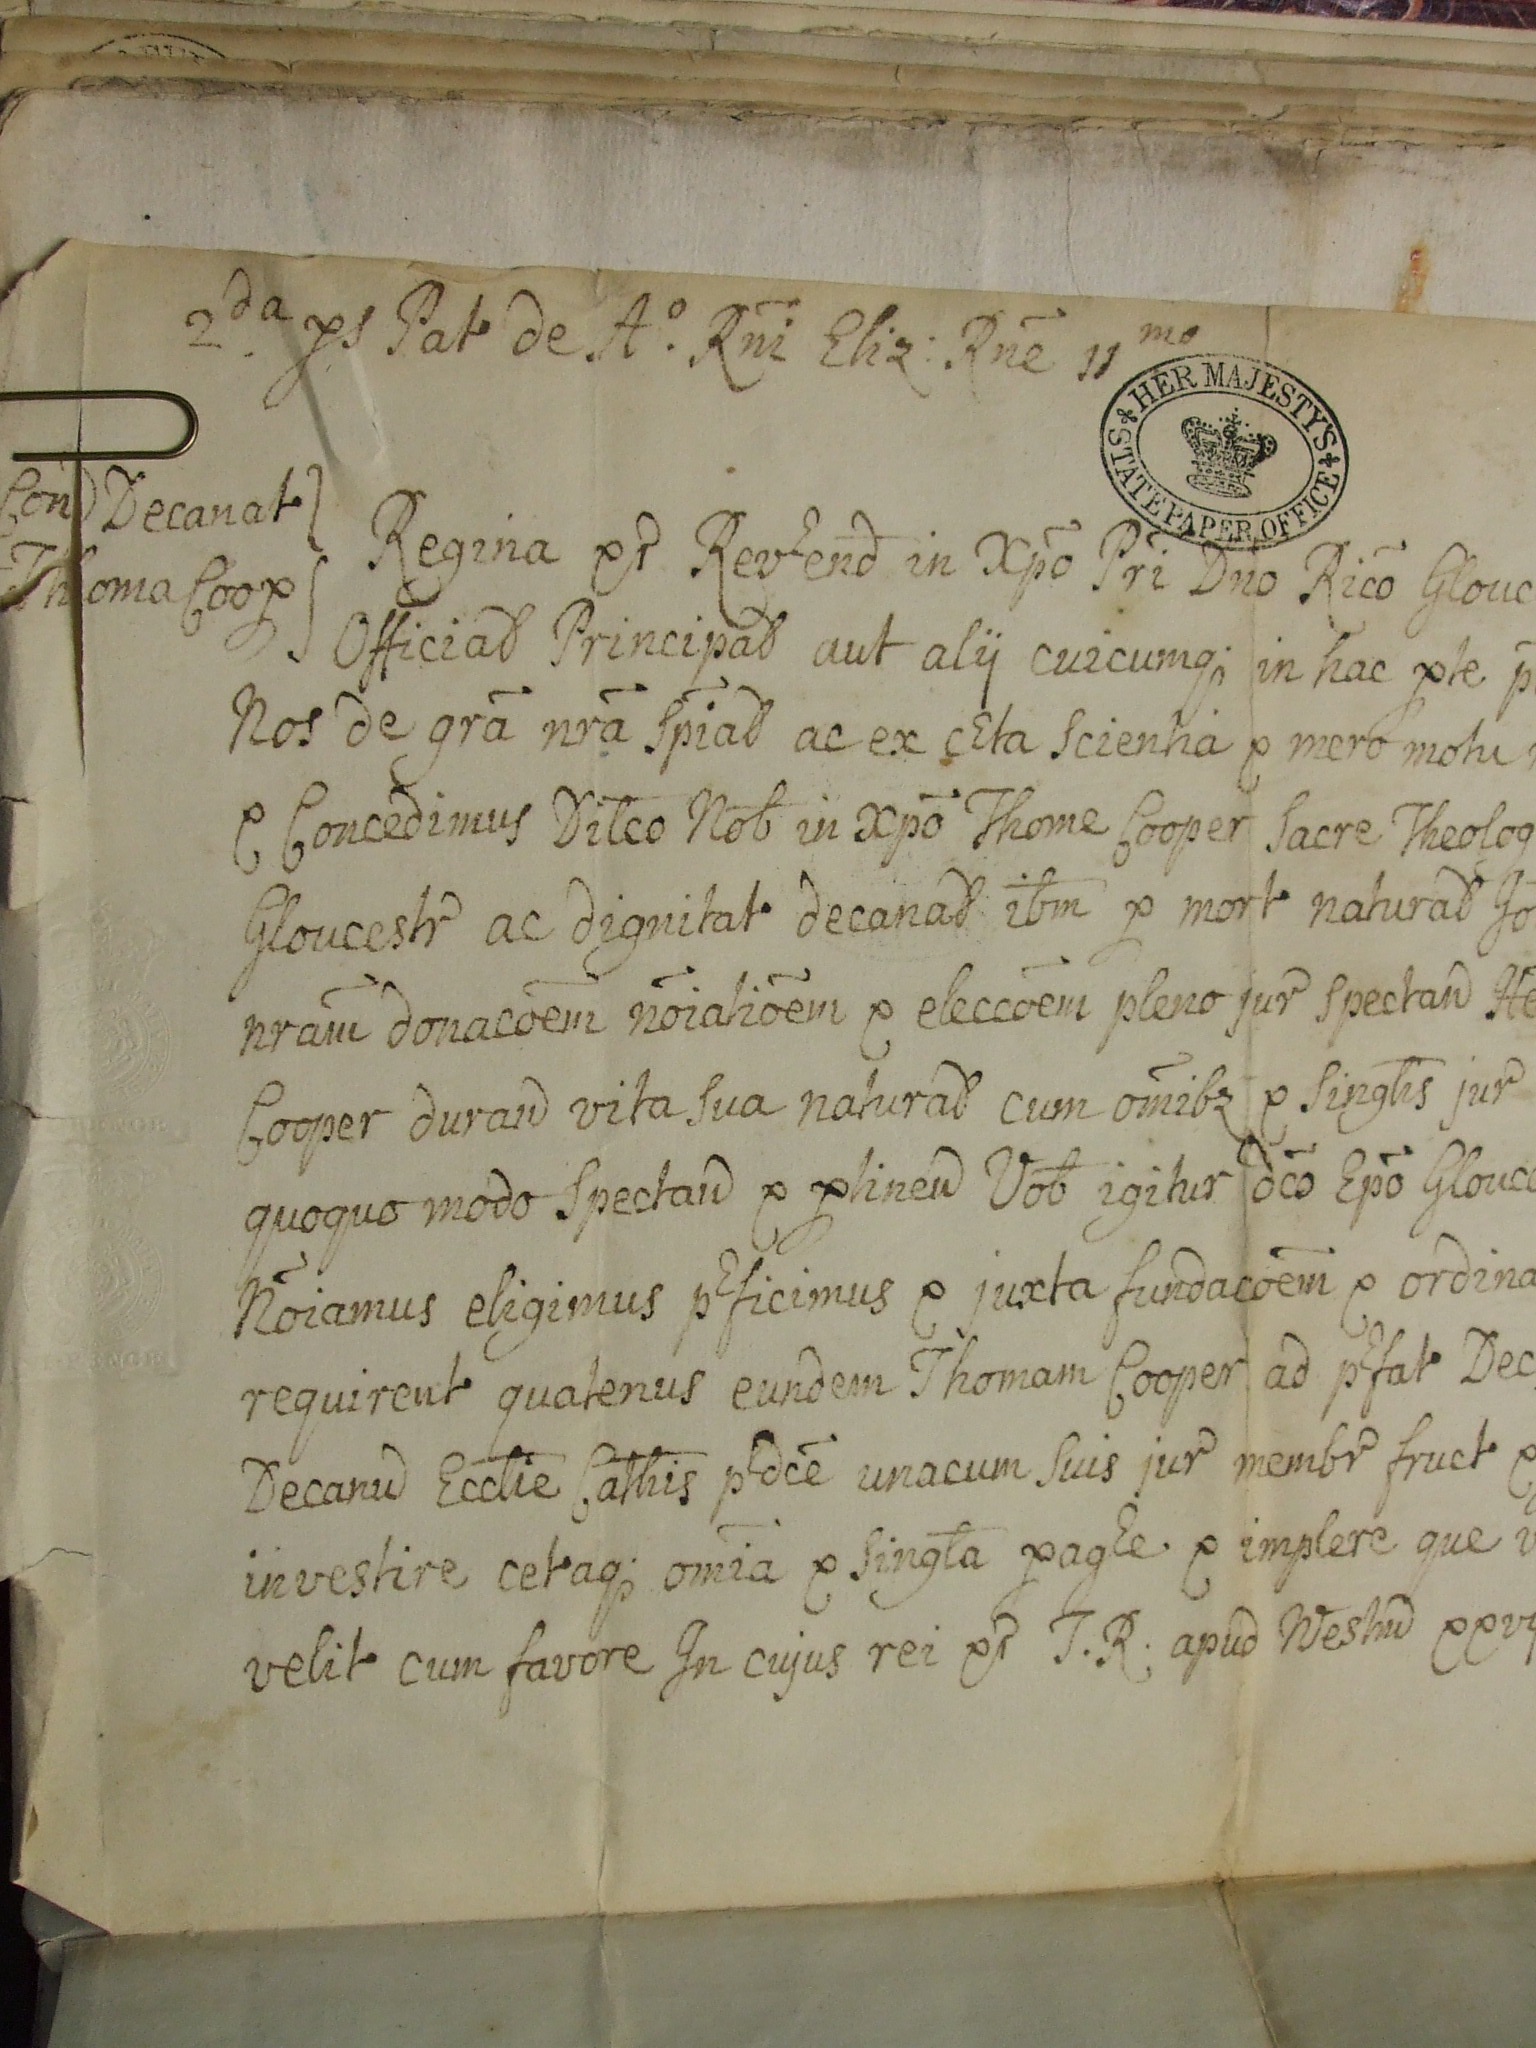 2da ps Pat de Ao. Rñi Eliz: Rñe 11mo
HER MAJESTY'S STATE PAPER OFFICE
Decanat
Thoma Coop
Regina &c Rev'end in Xpõ Pri Dno Rico Glouc
Officiał Principał aut alij cuicumq; in hac pte
Nos de grã nrã spiał ac ex c'ta scientia & mero motu
& Concedimus Dilco Nob in Xpõ Thome Cooper Sacre Theolog
Gloucestr ac dignitat decanał ibm p mort naturał Jo
nram donacõem nõiatiõem & eleccõem pleno jur spectand
Cooper durand vita sua naturał cum omibz & singlis jur
quoquo modo spectand & ptinend Vob igitur dco Epõ Glouc
Nõiamus eligimus p'ficimus & juxta fundacõem & ordina
requirent quatenus eundem Thomam Cooper ad p'fat Dec
Decanu Ecclie Cathis p'dce unacum suis jur membr fruct &
investire cetaq; omia & singla pag'e & implere que
velit cum favore In cujus rei &c T. R. apud Westm xxv